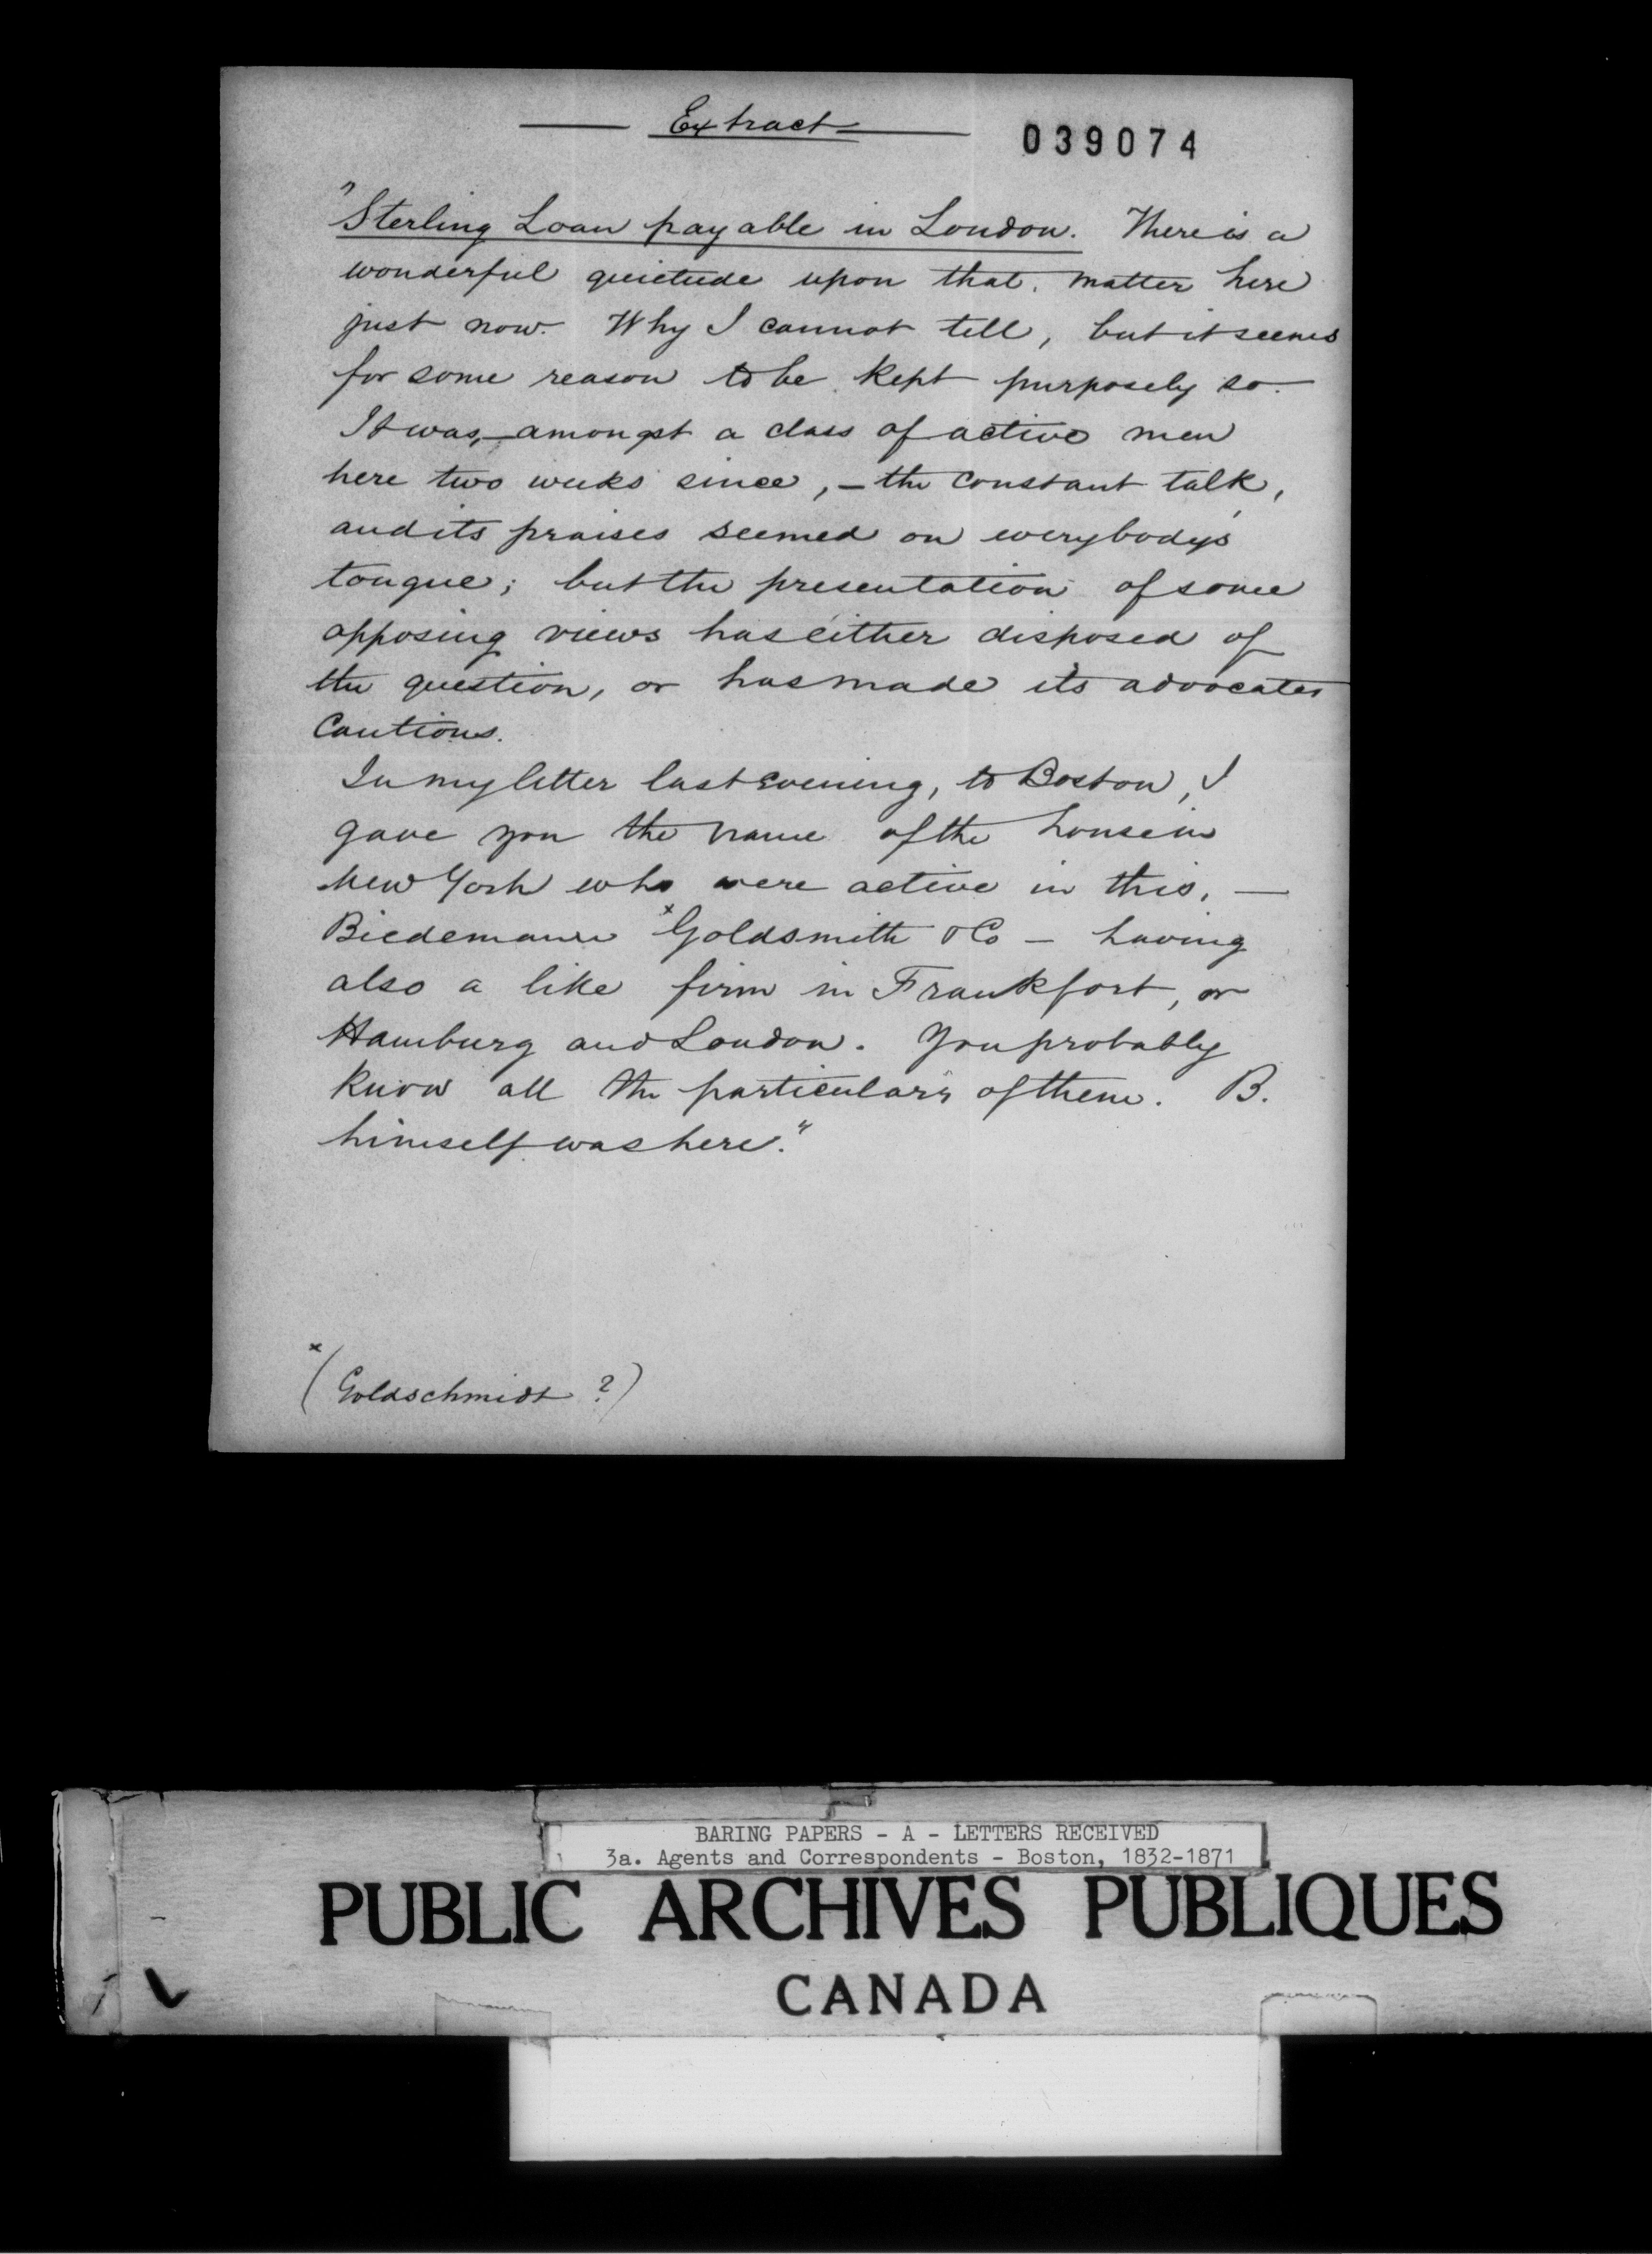 Extract
039074
"Sterling Loan payable in London. There is a
wonderful quietude upon that matter here
just now. Why I cannot tell, but it seems
for some reason to be kept purposely so.
It was,—amongst a class of active men
here two weeks since,—the constant talk,
and its praises seemed on everybodys
tongue; but the presentation of some
opposing views has either disposed of
the question, or has made its advocates
Cautious.
In my letter last evening, to Boston, I
gave you the name of the house in
New York who were active in this,—
Biedemann *Goldsmith & Co — having
also a like firm in Frankfort, or
Hamburg and London. You probably
know all the particulars of them. B.
himself was here."
*(Goldschmidt ?)
BARING PAPERS - A - LETTERS RECEIVED
3a. Agents and Correspondents - Boston, 1832-1871
PUBLIC ARCHIVES PUBLIQUES
CANADA